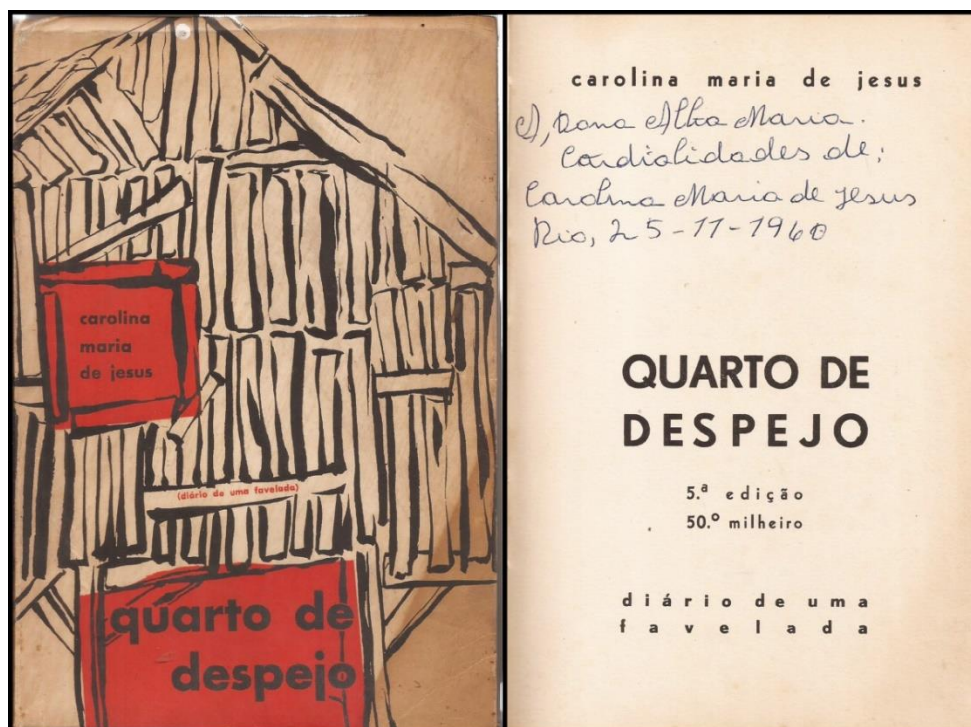 carolina
maria
de jesus
(diário de uma favelada)
quarto de
despejo
carolina maria de jesus
A, Dona Alba Maria.
Cordialidades de;
Carolina Maria de Jesus
Rio, 25-11-1960
QUARTO DE
DESPEJO
5.ª edição
50.º milheiro
diário de uma
favelada